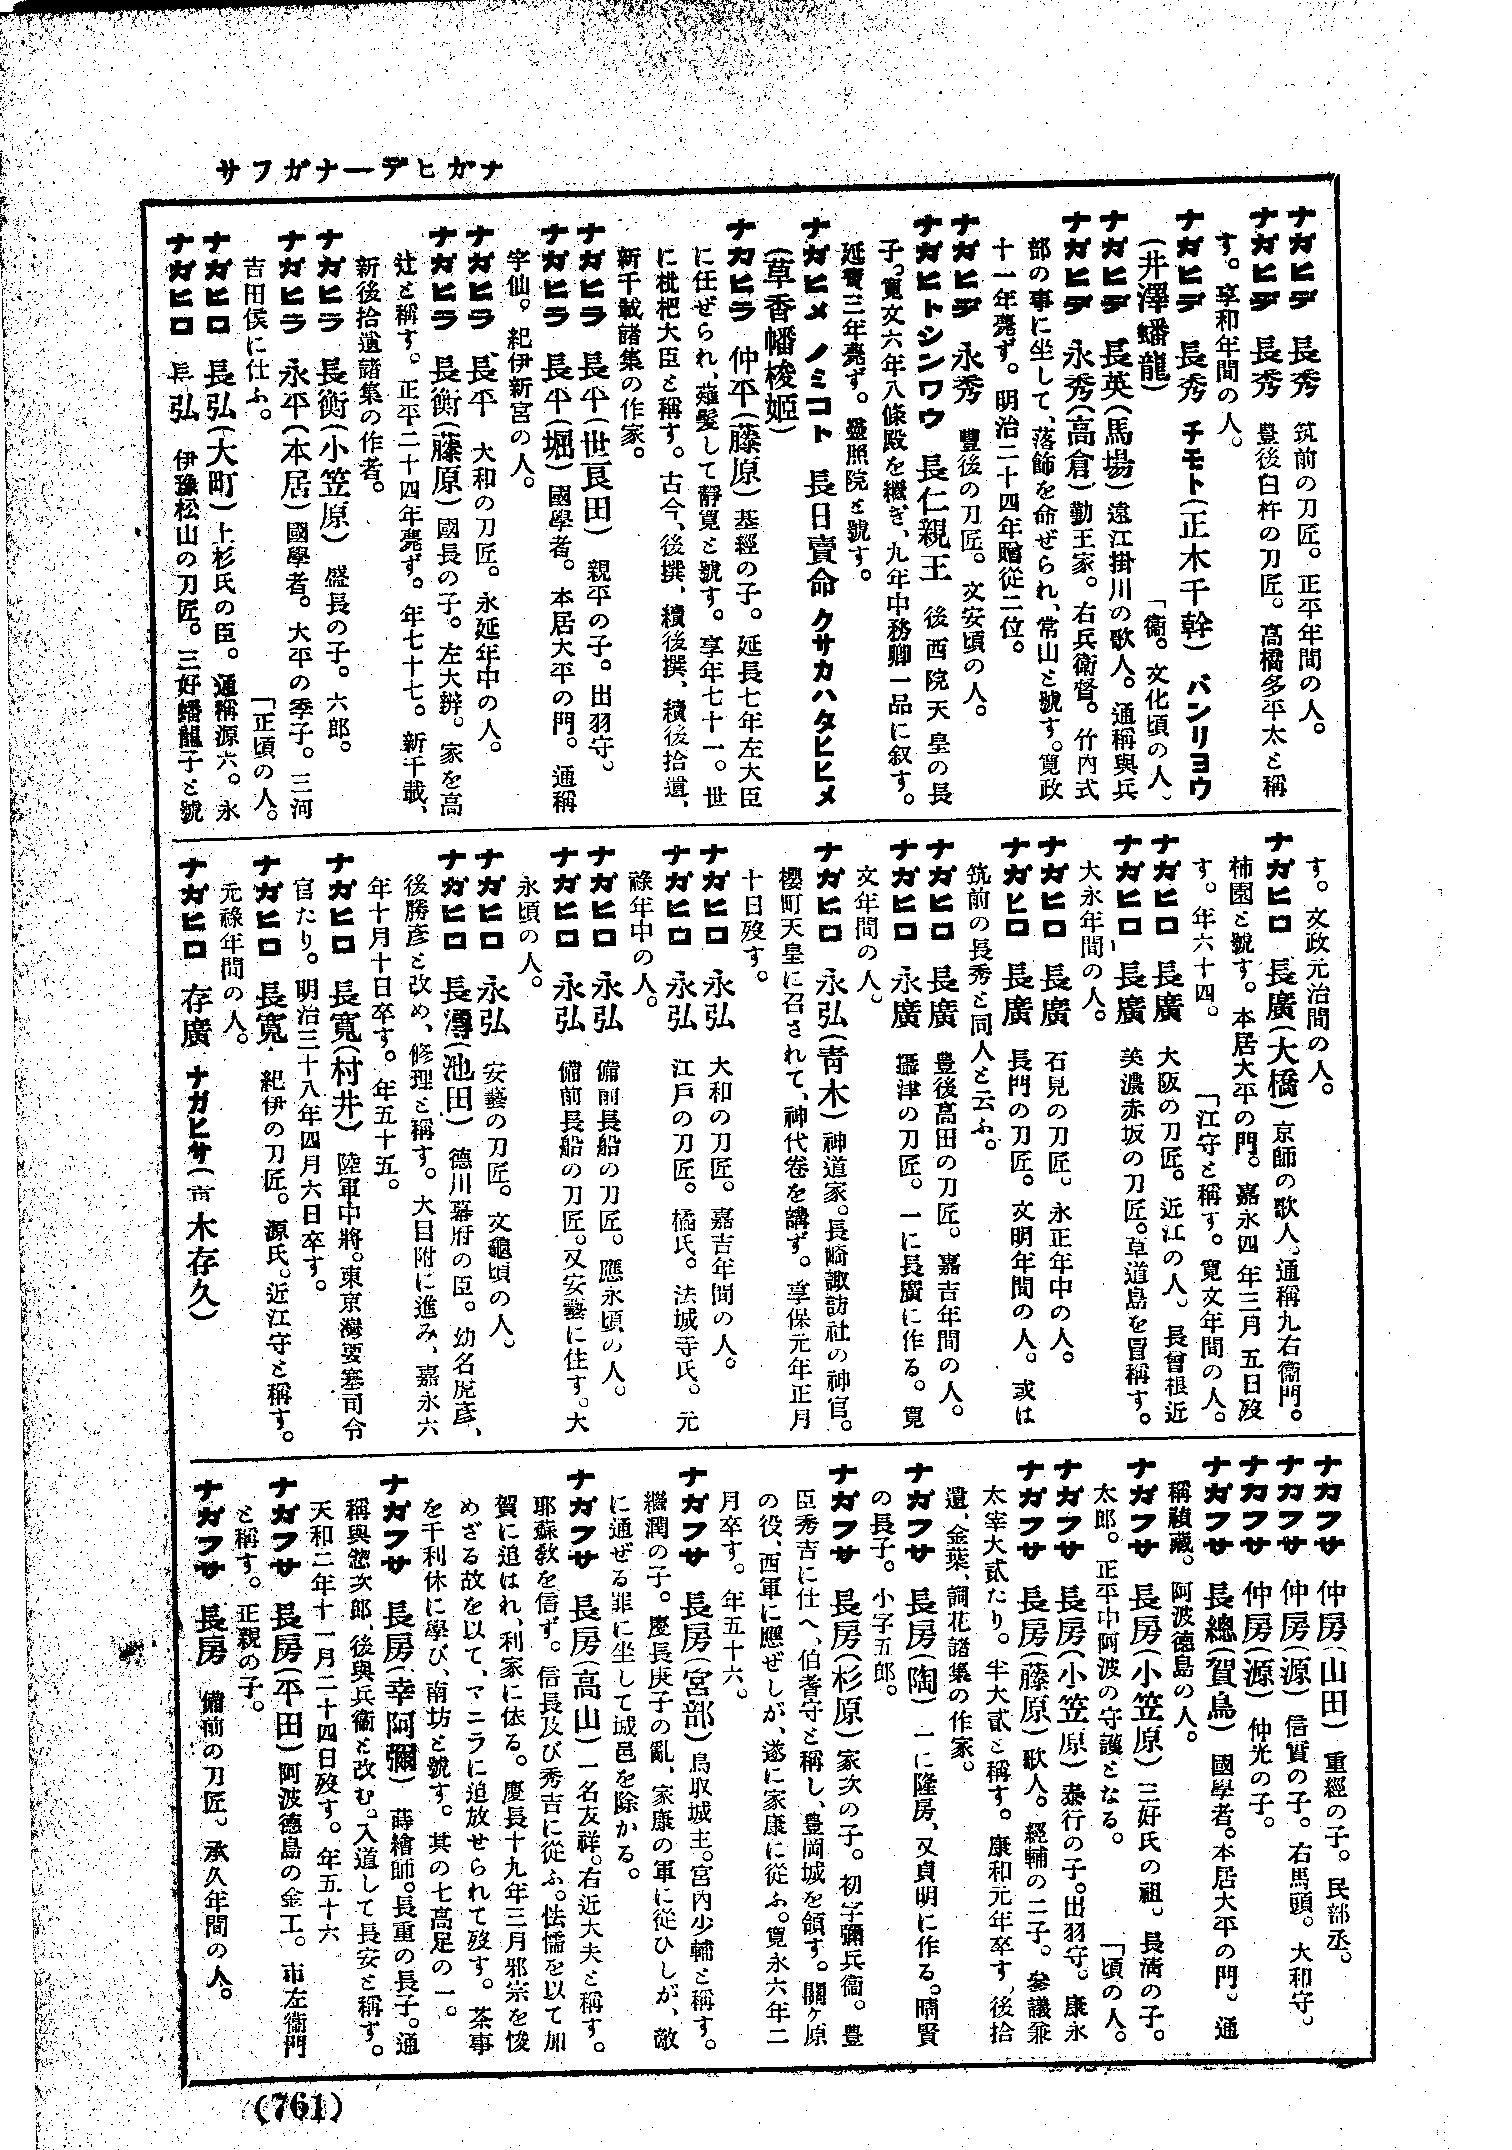 ナガヒデ―ナガフサ
ナガヒデ 長秀 筑前の刀匠。正平年間の人。
ナガヒデ 長秀 豊後臼杵の刀匠。高橋多平太と稱
す。享和年間の人。
ナガヒデ 長秀 チモト(正木千幹) バンリヨウ
(井澤蟠龍) 「衞。文化頃の人。
ナガヒデ 長英(馬場) 遠江掛川の歌人。通稱與兵
ナガヒデ 永秀(高倉) 勤王家。右兵衞督。竹内式
部の事に坐して、落飾を命ぜられ、常山と號す。寛政
十一年薨ず。明治二十四年贈從二位。
ナガヒデ 永秀 豐後の刀匠。文安頃の人。
ナガヒトシンワウ 長仁親王 後西院天皇の長
子。寛文六年八條殿を繼ぎ、九年中務卿一品に叙す。
延寶三年薨ず。盡照院と號す。
ナガヒメ ノミコト 長日賣命 クサカハタヒヒメ
(草香幡梭姫)
ナカヒラ 仲平(藤原) 基經の子。延長七年左大臣
に任ぜられ、薙髮して靜寬と號す。享年七十一。世
に枇杷大臣と稱す。古今、後撰、續後撰、續後拾遺、
新千載諸集の作家。
ナガヒラ 長平(世良田) 親平の子。出羽守。
ナガヒラ 長平(堀) 國學者。本居大平の門。通稱
宇仙。紀伊新宮の人。
ナガヒラ 長平 大和の刀匠。永延年中の人。
ナガヒラ 長衡(藤原) 國長の子。左大辨。家を高
辻と稱す。正平二十四年薨ず。年七十七。新千載、
新後拾遺諸集の作者。
ナガヒラ 長衡(小笠原) 盛長の子。六郎。
ナガヒラ 永平(本居) 國學者。大平の季子。三河
吉田侯に仕ふ。 「正頃の人。
ナガヒロ 長弘(大町) 上杉氏の臣。通稱源六。永
ナガヒロ 長弘 伊豫松山の刀匠。三好蟠龍子と號
す。文政元治間の人。
ナガヒロ 長廣(大橋) 京師の歌人。通稱九右衞門。
柿園と號す。本居大平の門。嘉永四年三月五日歿
す。年六十四。 「江守と稱す。寬文年間の人。
ナガヒロ 長廣 大阪の刀匠。近江の人。長曾根近
ナガヒロ 長廣 美濃赤坂の刀匠。草道島を冒稱す。
大永年間の人。
ナガヒロ 長廣 石見の刀匠。永正年中の人。
ナガヒロ 長廣 長門の刀匠。文明年間の人。或は
筑前の長秀と同人と云ふ。
ナガヒロ 長廣 豊後高田の刀匠。嘉吉年間の人。
ナガヒロ 永廣 攝津の刀匠。一に長廣に作る。寬
文年間の人。
ナガヒロ 永弘(靑木) 神道家。長崎諏訪社の神官。
櫻町天皇に召されて、神代卷を講ず。享保元年正月
十日歿す。
ナガヒロ 永弘 大和の刀匠。嘉吉年間の人。
ナガヒロ 永弘 江戸の刀匠。橘氏。法城寺氏。元
祿年中の人。
ナガヒロ 永弘 備前長船の刀匠。應永頃の人。
ナガヒロ 永弘 備前長船の刀匠。又安藝に住す。大
永頃の人。
ナガヒロ 永弘 安藝の刀匠。文龜頃の人。
ナガヒロ 長(池田) 德川幕府の臣。幼名虎彦、
後勝彦と改め、修理と稱す。大目附に進み、嘉永六
年十月十日卒す。年五十五。
ナガヒロ 長寬(村井) 陸軍中將。東京灣要塞司令
官たり。明治三十八年四月六日卒す。
ナガヒロ 長寬 紀伊の刀匠。源氏。近江守と稱す。
元祿年間の人。
ナガヒロ 存廣 ナガヒサ(木存久)
ナカフサ 仲房(山田) 重經の子。民部丞。
ナカフサ 仲房(源) 信實の子。右馬頭。大和守。
ナカフサ 仲房(源) 仲光の子。
ナガフサ 長總(賀島) 國學者。本居大平の門。通
稱藏。阿波德島の人。
ナガフサ 長房(小笠原) 三好氏の祖。長淸の子。
太郎。正平中阿波の守護となる。 「頃の人。
ナガフサ 長房(小笠原) 泰行の子。出羽守。康永
ナガフサ 長房(藤原) 歌人。經輔の二子。參議兼
太宰大貳たり。半大貳と稱す。康和元年卒す。後拾
遺、金葉、詞花諸集の作家。
ナガフサ 長房(陶) 一に隆房、又貞明に作る。晴賢
の長子。小字五郎。
ナガフサ 長房(杉原) 家次の子。初字彌兵衞。豊
臣秀吉に仕へ、伯耆守と稱し、豊岡城を領す。關ヶ原
の役、西軍に應ぜしが、遂に家康に從ふ。寬永六年二
月卒す。年五十六。
ナガフサ 長房(宮部) 鳥取城主。宮内少輔と稱す。
繼潤の子。慶長庚子の亂、家康の軍に從ひしが、敵
に通ぜる罪に坐して城邑を除かる。
ナガフサ 長房(高山) 一名友祥。右近大夫と稱す。
耶蘇敎を信ず。信長及び秀吉に從ふ。怯懦を以て加
賀に追はれ、利家に依る。慶長十九年三月邪宗を悛
めざる故を以て、マニラに追放せられて歿す。茶事
を千利休に學び、南坊と號す。其の七高足の一。
ナガフサ 長房(幸阿彌) 蒔繪師。長重の長子。通
稱與惣次郎、後與兵衞と改む。入道して長安と稱す。
天和二年十一月二十四日歿す。年五十六
ナガフサ 長房(平田) 阿波德島の金工。市左衞門
と稱す。正親の子。
ナガフサ 長房 備前の刀匠。承久年間の人。
(761)